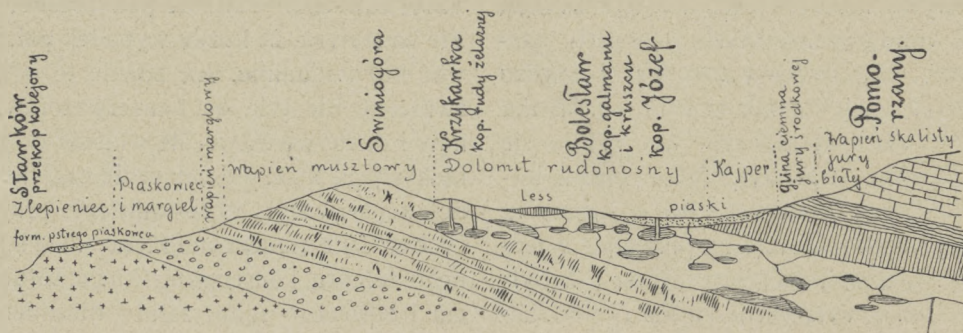 Sławków
przekop kolejowy
Zlepieniec
form. pstrego piaskowca
Piaskowiec
i margiel
wapień marglowy
Wapień muszlowy
Świniogóra
Krzykawka
kop. rudy żelaznej
Dolomit rudonośny
Bolesław
kop. galmanu
i kruszcu
kop. Józef
less
piaski
Kajper
glina ciemna
jury środkowej
Wapień skalisty
jury
białej
Pomo-
rzany.